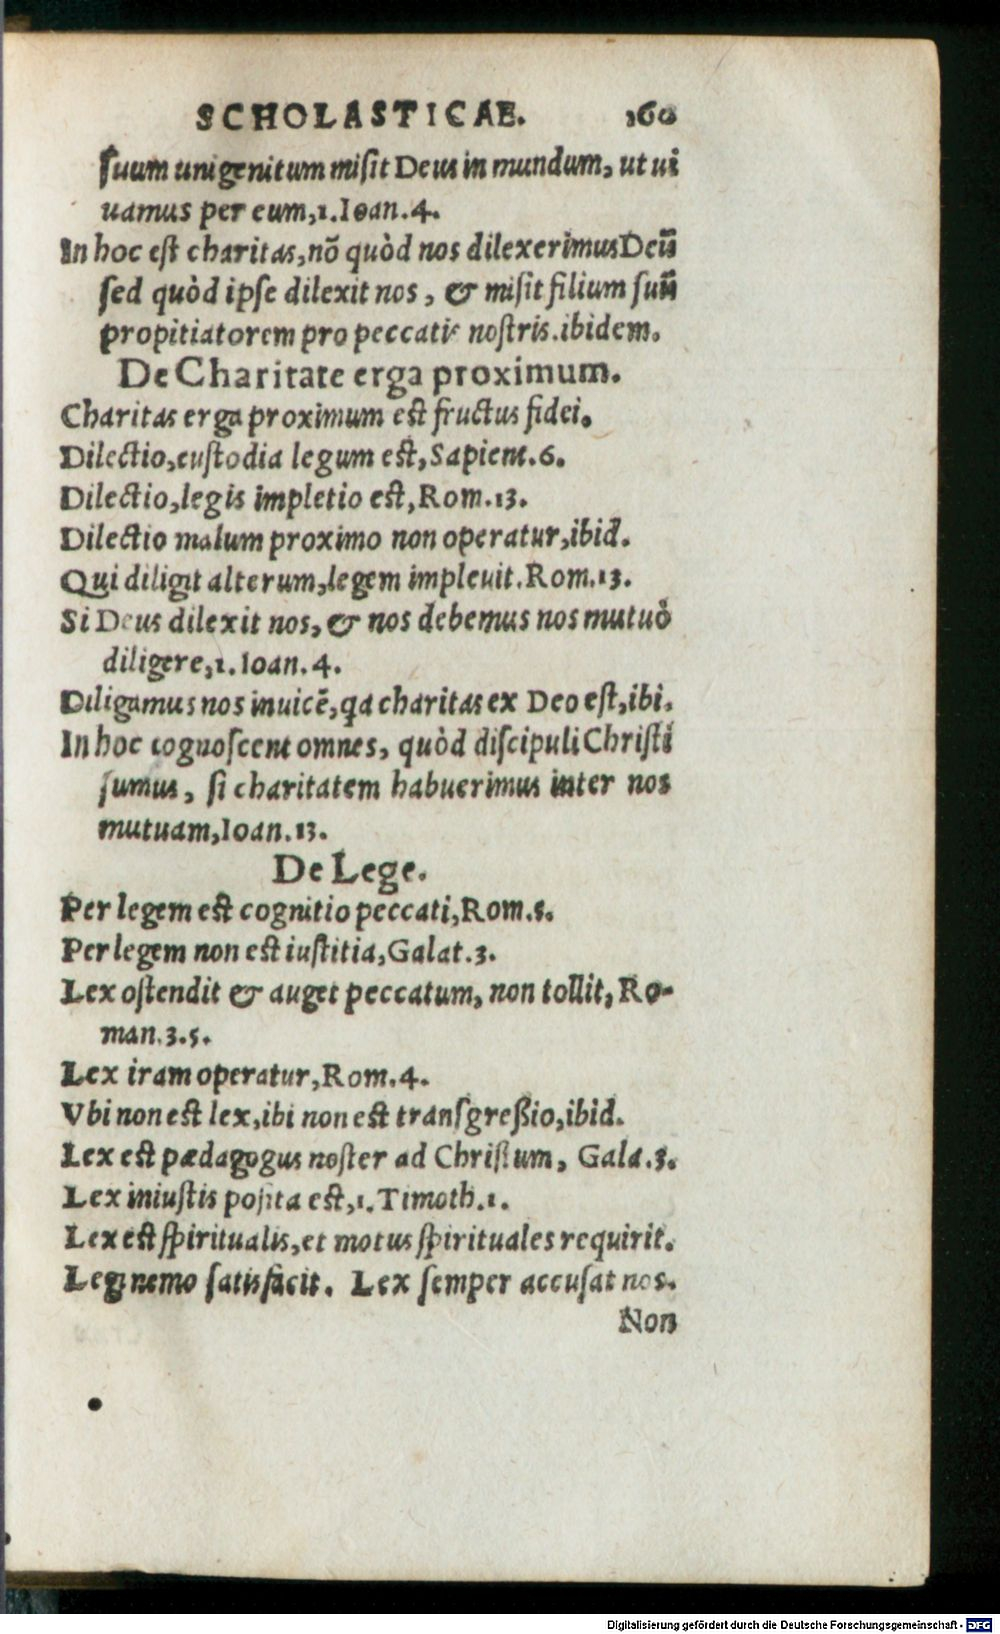 SCHOLASTICAE. 160
ſuum unigenitum miſit Deus in mundum, ut ui
uamus per eum,1.Ioan.4.
In hoc eſt charitas,nō quòd nos dilexerimus Deū
ſed quòd ipſe dilexit nos, & miſit filium ſuū
propitiatorem pro peccatis noſtris.ibidem.
De Charitate erga proximum.
Charitas erga proximum eſt fructus fidei.
Dilectio,cuſtodia legum eſt,Sapient.6.
Dilectio,legis impletio eſt,Rom.13.
Dilectio malum proximo non operatur,ibid.
Qui diligit alterum,legem impleuit.Rom.13.
Si Deus dilexit nos,& nos debemus nos mutuò
diligere,1.Ioan.4.
Diligamus nos inuicē,qa charitas ex Deo eſt,ibi.
In hoc cognoſcent omnes, quòd diſcipuli Chriſti
ſumus, ſi charitatem habuerimus inter nos
mutuam,Ioan.13.
De Lege.
Per legem eſt cognitio peccati,Rom.5.
Per legem non eſt iuſtitia,Galat.3.
Lex oſtendit & auget peccatum, non tollit, Ro-
man.3.5.
Lex iram operatur,Rom.4.
Vbi non eſt lex,ibi non eſt tranſgreßio,ibid.
Lex eſt pædagogus noſter ad Chriſtum, Gala.3.
Lex iniuſtis poſita eſt,1.Timoth.1.
Lex eſt ſpiritualis,et motus ſpirituales requirit.
Legi nemo ſatisfacit. Lex ſemper accuſat nos.
Non
Digitalisierung gefördert durch die Deutsche Forschungsgemeinschaft - DFG